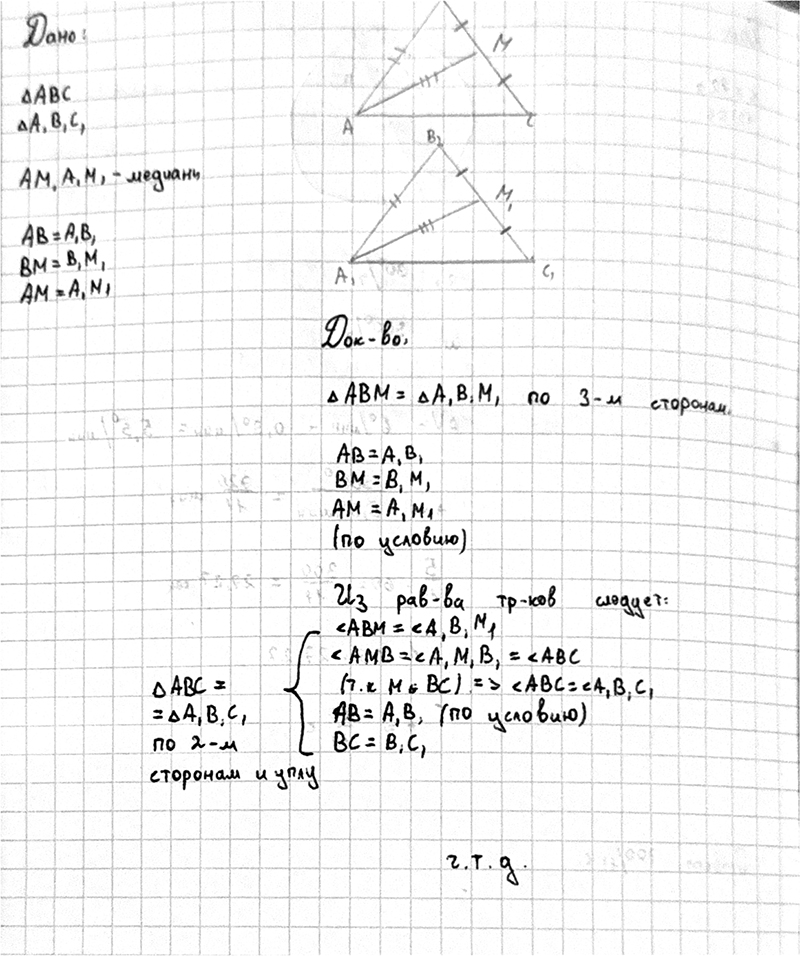 Дано:
△ABC
△A₁B₁C₁
AM, A₁M₁ - медианы
AB = A₁B₁
BM = B₁M₁
AM = A₁M₁
M
A
C
B₂
M₁
A₁
C₁
Док-во:
△ABM = △A₁B₁M₁ по 3-м сторонам.
AB = A₁B₁
BM = B₁M₁
AM = A₁M₁
(по условию)
Из рав-ва тр-ков следует:
<ABM = <A₁B₁M₁
<AMB = <A₁M₁B₁ = <ABC
(т.к M ∈ BC) => <ABC = <A₁B₁C₁
AB = A₁B₁ (по условию)
BC = B₁C₁
△ABC =
= △A₁B₁C₁
по 2-м
сторонам и углу
ч.т.д.